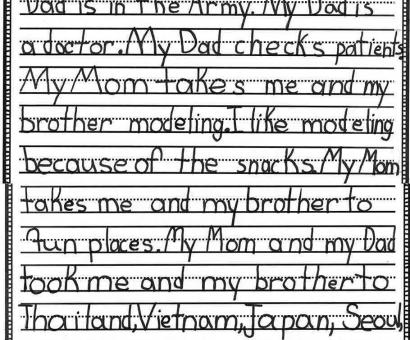 Dad is in the Army. My Dad is
a doctor. My Dad checks patients.
My Mom takes me and my
brother modeling. I like modeling
because of the snacks. My Mom
takes me and my brother to
fun places. My Mom and my Dad
took me and my brother to
Thailand, Vietnam, Japan, Seoul,